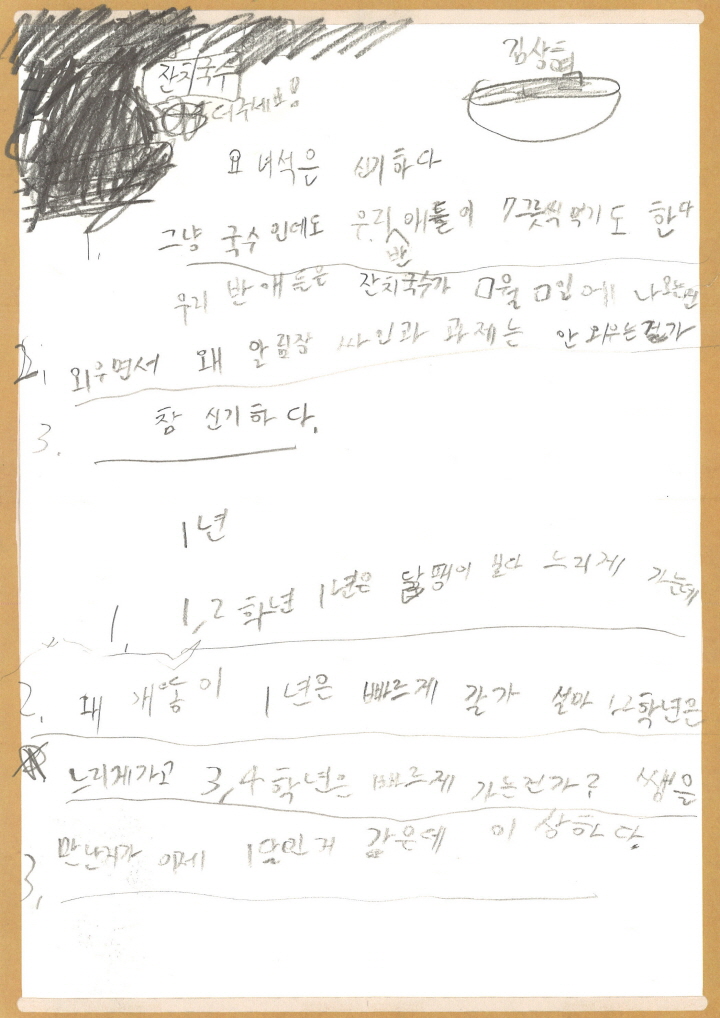 잔치국수
더주세요!
김상혁
요 녀석은 신기하다
1. 그냥 국수인데도 우리 반 애들이 7그릇씩 먹기도 한다
우리 반 애들은 잔치국수가 □월 □일에 나오는건
2. 외우면서 왜 알림장 싸인과 과제는 안 외우는건가
3. 참 신기하다.
1년
1. 1,2학년 1년은 달팽이 보다 느리게 가는데
2. 왜 개똥이 1년은 빠르게 갈가 설마 1,2학년은
느리게가고 3,4학년은 빠르게 가는건가? 쌤을
만난지가 이제 1달인거 같은데 이상하다.
3.